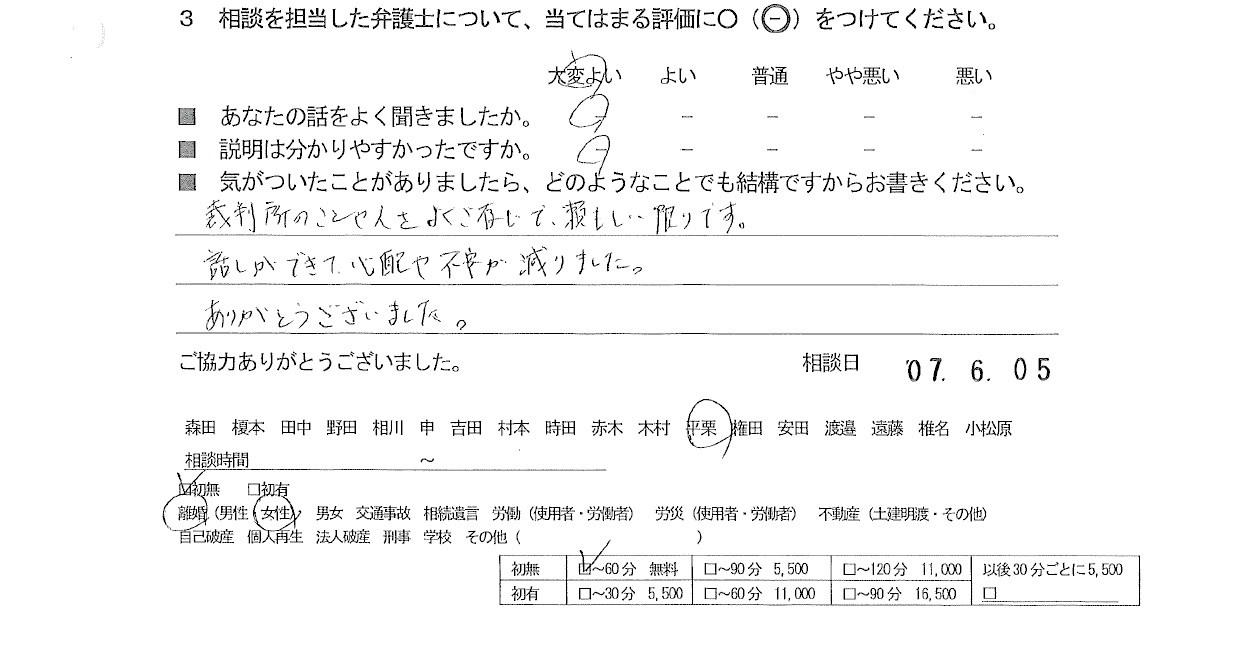 3 相談を担当した弁護士について、当てはまる評価に○（⊖）をつけてください。
大変よい よい 普通 やや悪い 悪い
■ あなたの話をよく聞きましたか。 － － － － －
■ 説明は分かりやすかったですか。 － － － － －
■ 気がついたことがありましたら、どのようなことでも結構ですからお書きください。
裁判所のことや人をよくご存じで、頼もしい限りです。
話しができて、心配や不安が減りました。
ありがとうございました。
ご協力ありがとうございました。 相談日 '07. 6. 05
森田 榎本 田中 野田 相川 申 吉田 村本 時田 赤木 木村 平栗 権田 安田 渡邉 遠藤 椎名 小松原
相談時間 ～
☑初無 □初有
離婚（男性・女性） 男女 交通事故 相続遺言 労働（使用者・労働者） 労災（使用者・労働者） 不動産（土建明渡・その他）
自己破産 個人再生 法人破産 刑事 学校 その他（ ）
初無 ☑～60分 無料 □～90分 5,500 □～120分 11,000 以後30分ごとに5,500
初有 □～30分 5,500 □～60分 11,000 □～90分 16,500 □